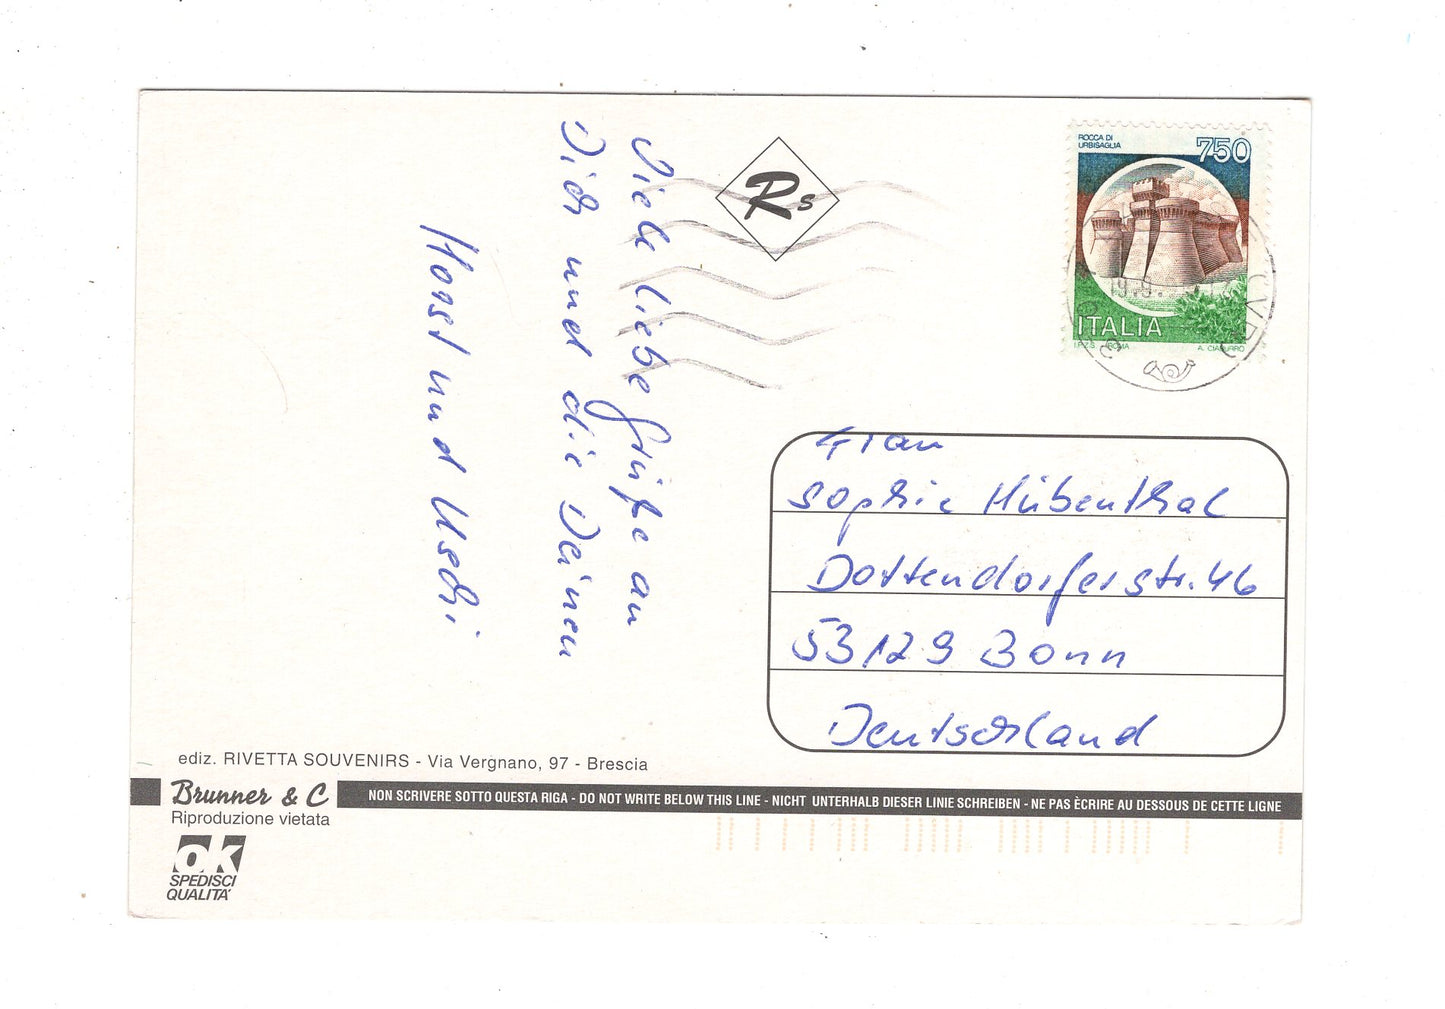 Viele liebe Grüße an
Dich und die Deinen
Horst und Uschi
Rs
ROCCA DI
URBISAGLIA
750
ITALIA
I.P.Z.S. ROMA
A. CIABURRO
Frau
Sophie Hübenthal
Dottendorferstr. 46
53129 Bonn
Deutschland
ediz. RIVETTA SOUVENIRS - Via Vergnano, 97 - Brescia
Brunner & C
Riproduzione vietata
NON SCRIVERE SOTTO QUESTA RIGA - DO NOT WRITE BELOW THIS LINE - NICHT UNTERHALB DIESER LINIE SCHREIBEN - NE PAS ÈCRIRE AU DESSOUS DE CETTE LIGNE
ok
SPEDISCI
QUALITA'